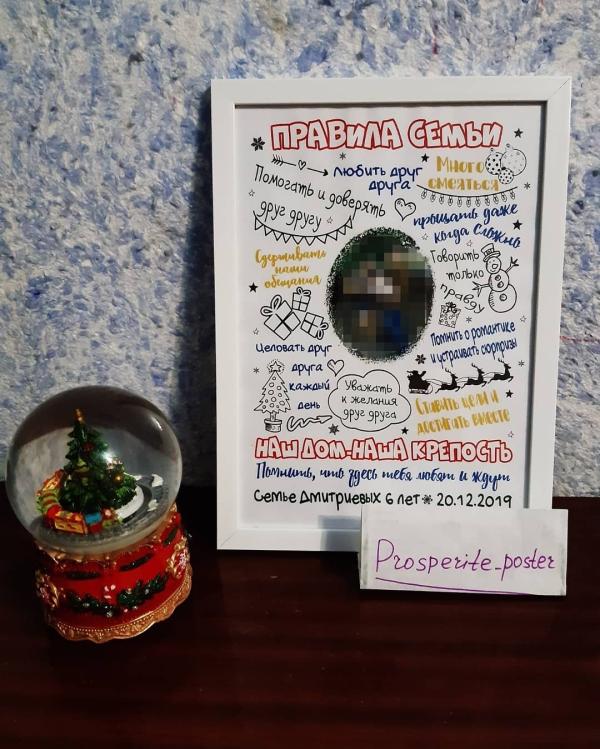 ПРАВИЛА СЕМЬИ
Помогать и доверять
друг другу
любить друг
друга
Много
смеяться
прощать даже
когда сложно
Сдерживать
наши
обещания
Говорить
только
правду
Целовать друг
друга
каждый
день
Уважать
к желания
друг друга
Помнить о романтике
и устраивать сюрпризы
Ставить цели и
достигать вместе
НАШ ДОМ-НАША КРЕПОСТЬ
Помнить, что здесь тебя любят и ждут
Семье Дмитриевых 6 лет 20.12.2019
Prosperite_poster